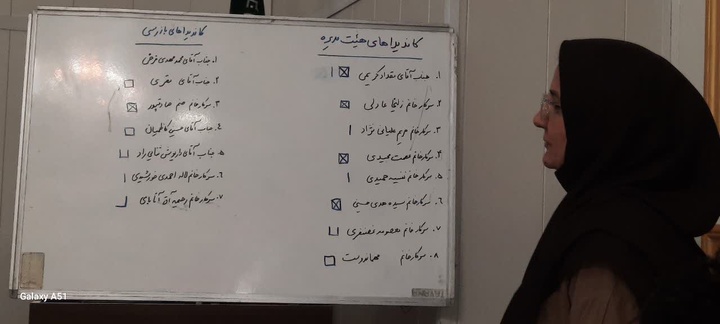 کاندیداهای هیئت مدیره
۱. جناب آقای مقداد کریمی
۲. سرکار خانم زلیخا عادلی
۳. سرکار خانم مریم علیایی نژاد
۴. سرکار خانم عصمت حمیدی
۵. سرکار خانم نفیسه حمیدی
۶. سرکار خانم سیده هدی حسینی
۷. سرکار خانم معصومه غضنفری
۸. سرکار خانم مهماندوست
کاندیداهای بازرسی
۱. جناب آقای محمد مهدی
۲. جناب آقای
۳. سرکار خانم صادقپور
۴. جناب آقای حسین کاظمیان
۵. جناب آقای داریوش
۶. سرکار خانم لاله احمدی
۷. سرکار خانم
Galaxy A51